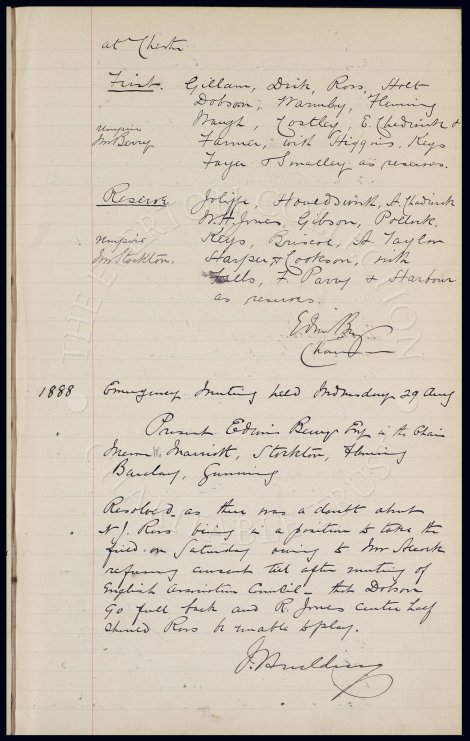 at Chester
First. Gillam, Dick, Ross, Holt
Dobson; Warmby, Fleming
Waugh, Costley, E. Chadwick &
umpire
Mr Berry
Farmer, with Higgins, Keys
Fayer & Smalley as reserves.
Reserve Joliffe, Houldsworth, A. Chadwick
W. H. Jones, Gibson, Pollock,
umpire
Mr Stockton.
Keys, Briscoe, A. Taylor
Harper & Cookson, with
Falls, F. Parry & Harbour
as reserves.
Chan
1888 Emergency Meeting held Wednesday 29 Aug
Present Edwin Berry Esq in the Chair
Messrs W. Marriott, Stockton, Fleming
Barclay, Gunning
Resolved as there was a doubt about
N. J. Ross being in a position to take the
field on Saturday owing to Mr
refusing consent till after meeting of
English Association Council – that Dobson
Go full back and R. Jones centre half
should Ross be unable to play.
THE EVERTON COLLECTION CHARITABLE TRUST